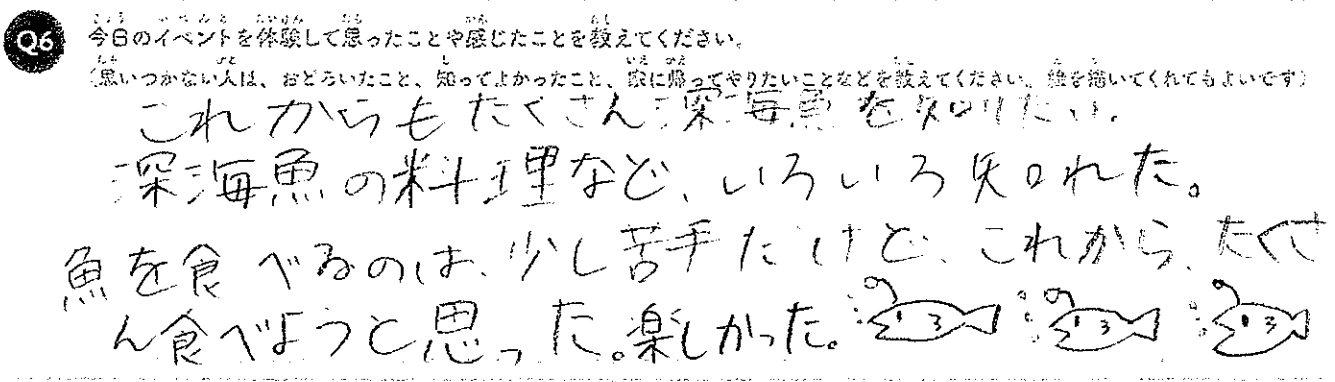 Q6 今日のイベントを体験して思ったことや感じたことを教えてください。
(思いつかない人は、おどろいたこと、知ってよかったこと、家に帰ってやりたいことなどを教えてください。絵を描いてくれてもよいです)
これからもたくさん深海魚を知りたい。
深海魚の料理など、いろいろ知れた。
魚を食べるのは、少し苦手だけど、これから、たくさ
ん食べようと思った。楽しかった。